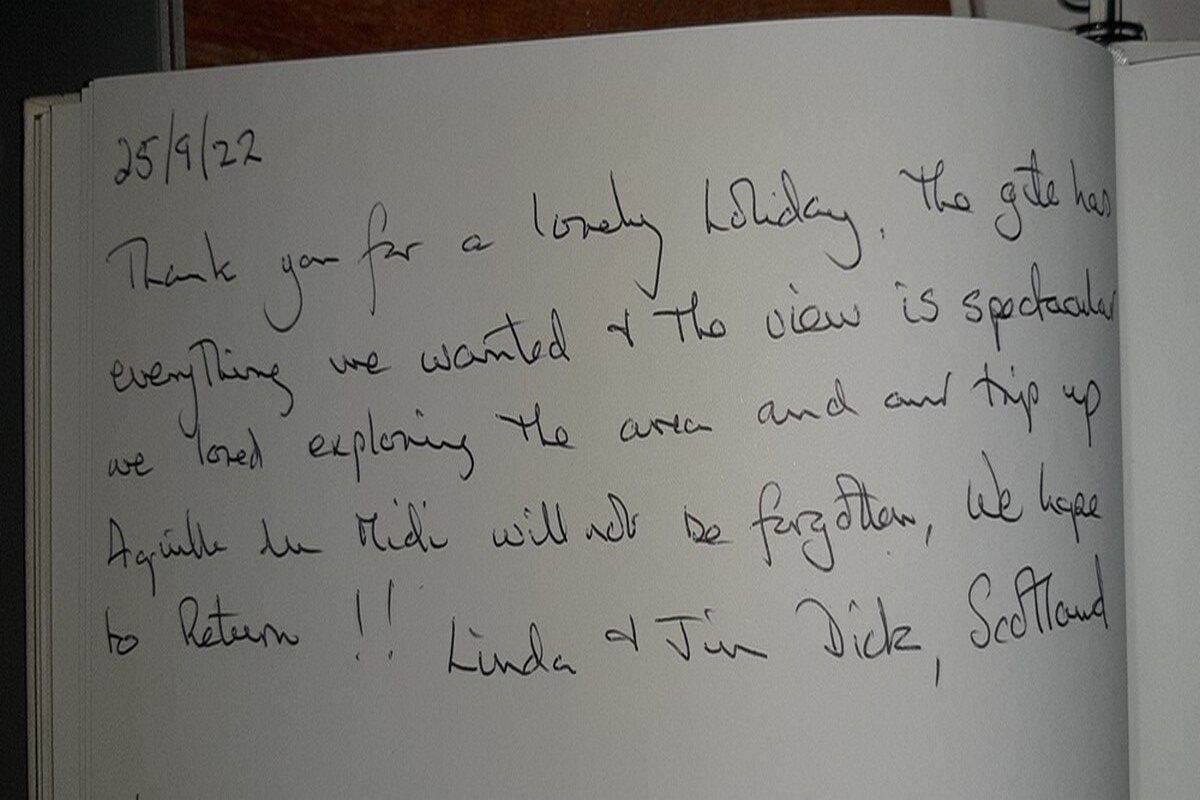 25/9/22
Thank you for a lovely holiday. The gite has
everything we wanted & the view is spectacular
we loved exploring the area and our trip up
Aguille du Midi will not be forgotten, We hope
to Return !! Linda & Jim Dick, Scotland